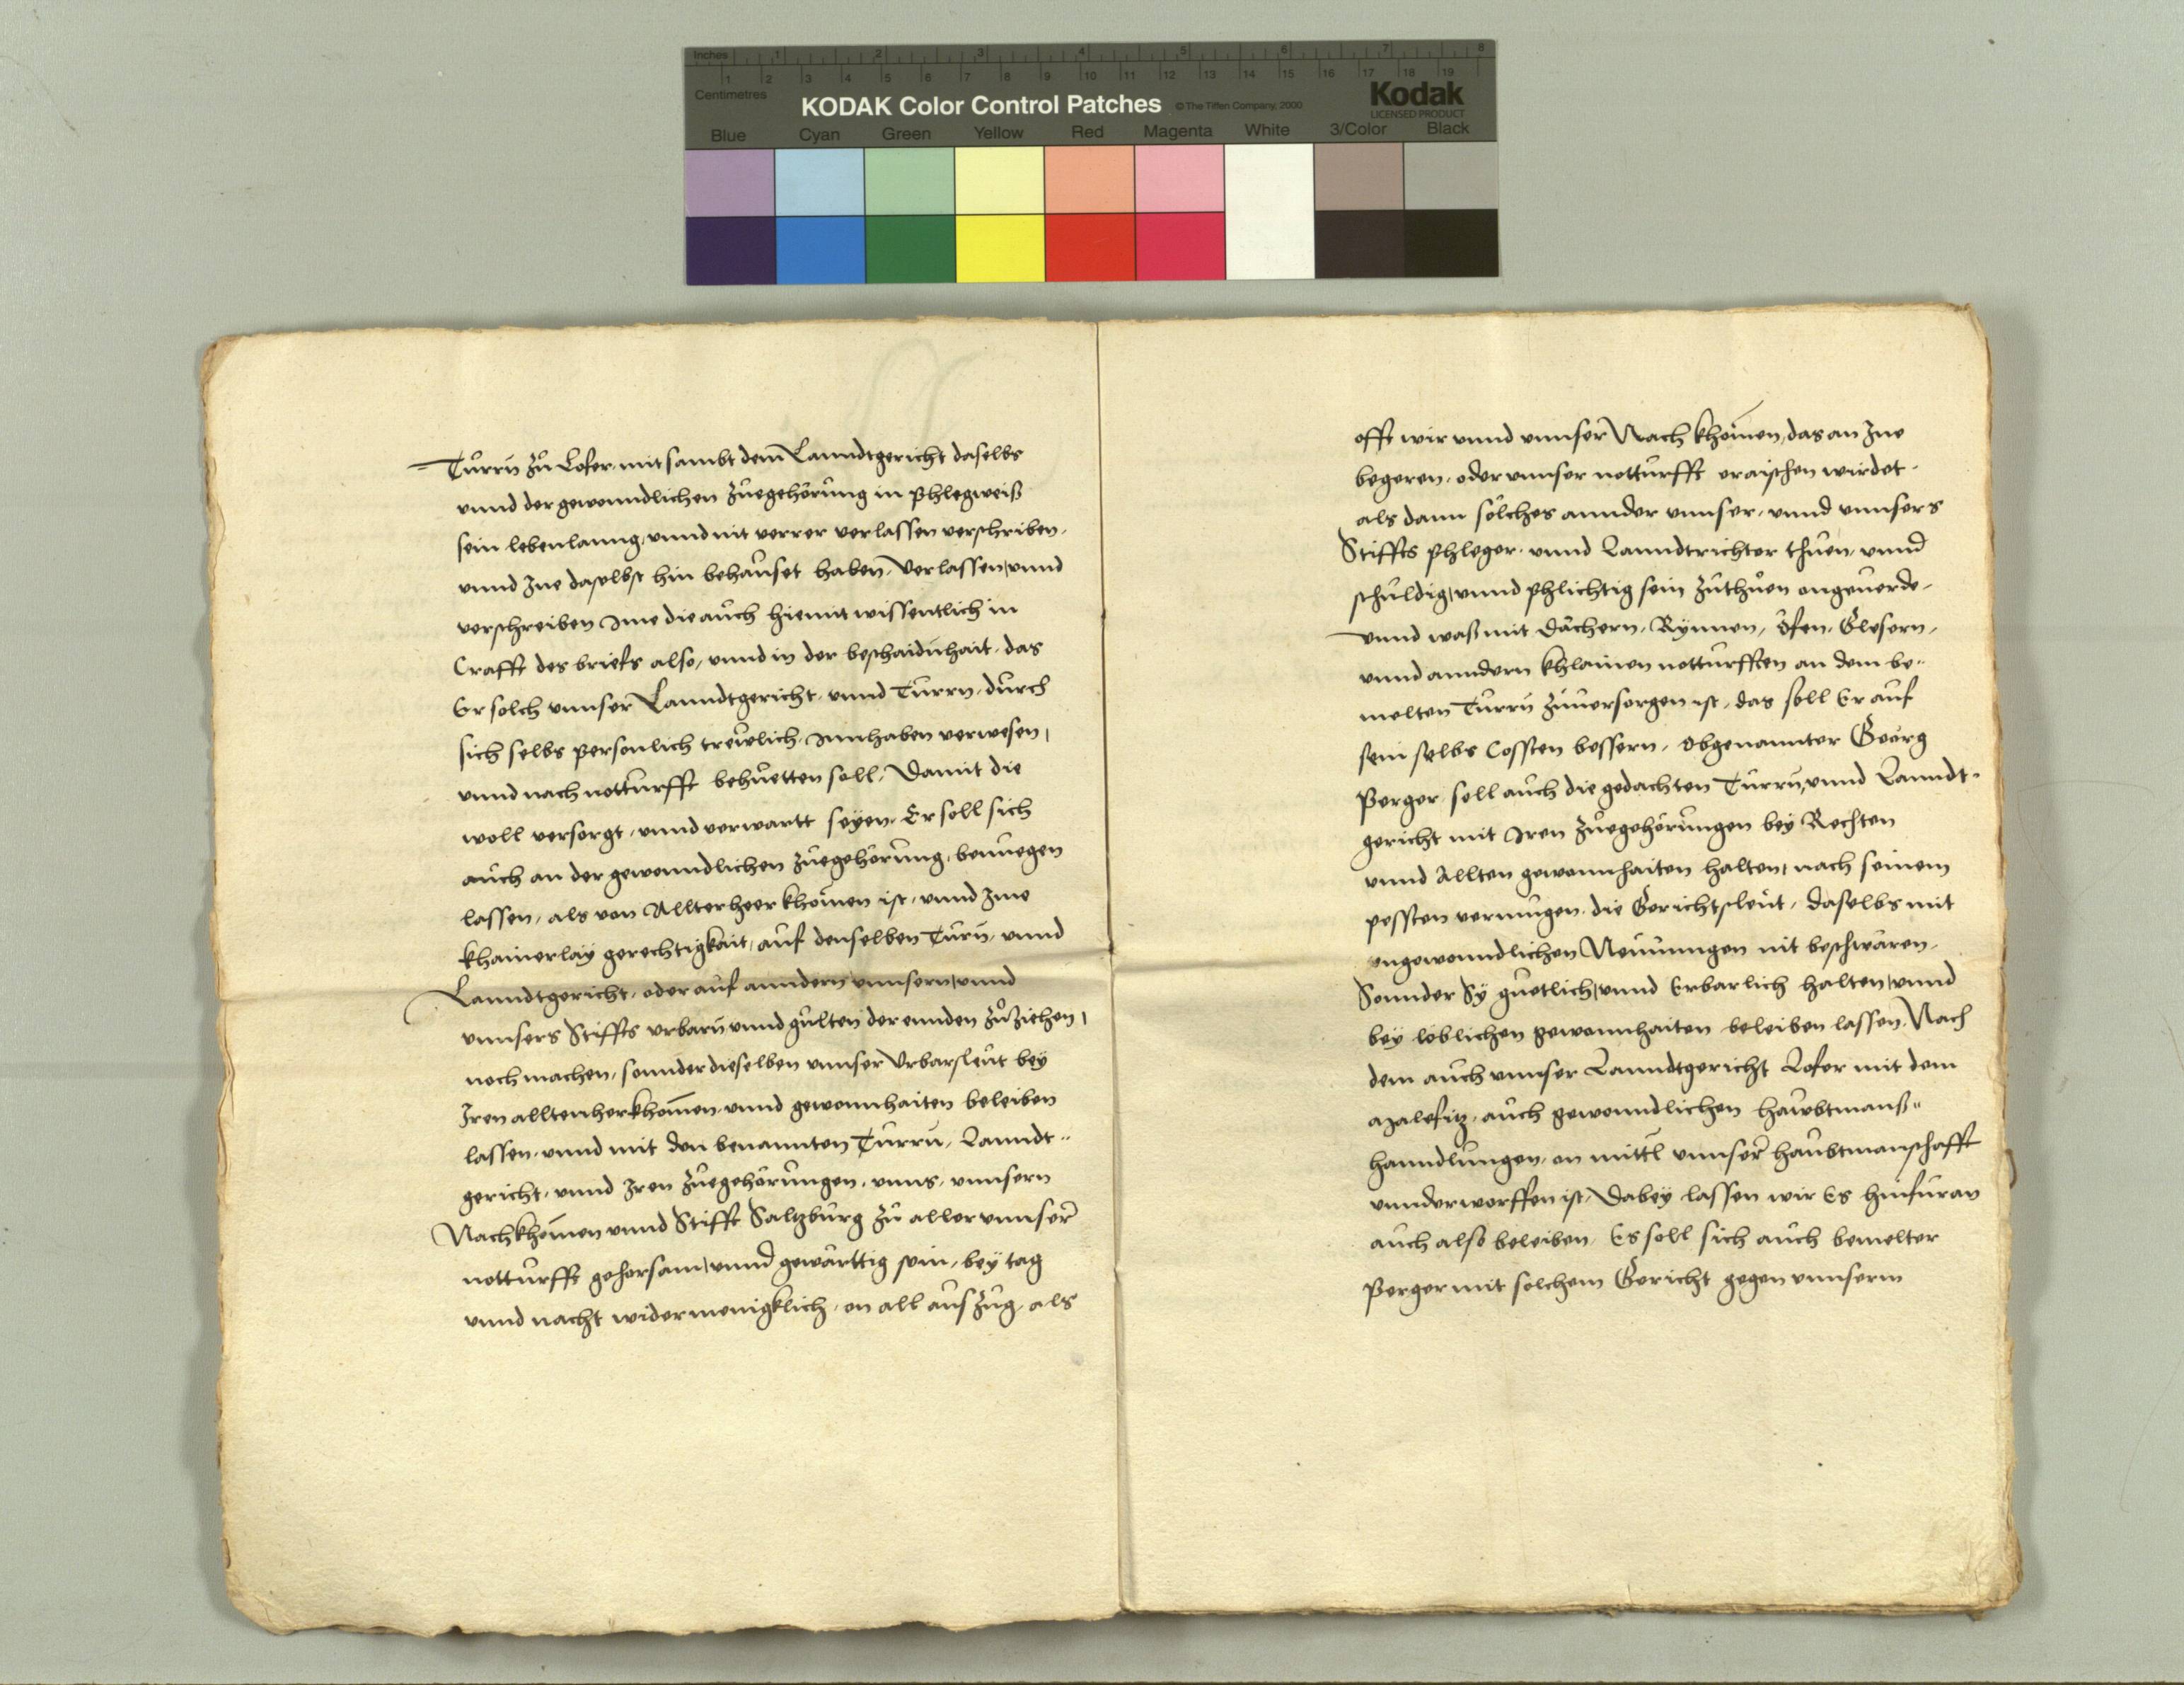 Inches 1 2 3 4 5 6 7 8
1 2 3 4 5 6 7 8 9 10 11 12 13 14 15 16 17 18 19
Centimetres
KODAK Color Control Patches © The Tiffen Company, 2000 Kodak
LICENSED PRODUCT
Blue Cyan Green Yellow Red Magenta White 3/Color Black
Turrn zu Lofer mitsambt dem Lanndtgericht daselbs
vnnd der gewonndlichen zuegehörung in phlegweiß
sein lebenlanng, vnnd nit verrer verlassen verschriben.
vnnd Ine daselbst hin behauset haben. Verlassen vnnd
verschreiben Ime die auch hiemit wissentlich in
Crafft des briefs also, vnnd in der beschaidnhait. das
Er solch vnnser Lanndtgericht. vnnd Turrn. durch
sich selbs personlich trewlich Innhaben verwesen,
vnnd nach notturfft behuetten soll, Damit die
woll versorgt. vnnd verwartt seyen. Er soll sich
auch an der gewonndlichen zuegehörung, benuegen
lassen, als von Allter heer khomen ist, vnnd Ime
khainerlay gerechtigkait, auf denselben Turn. vnnd
Lanndtgericht. oder auf anndern vnnsern, vnnd
vnnsers Stiffts vrbarn vnnd gulten der ennden zuziehen,
noch machen, sonnder dieselben vnnser Vrbarsleut bey
Iren alltenherkhomen vnnd gewonnhaiten beleiben
lassen. vnnd mit den benannten Turrn, Lanndt-
gericht. vnnd Iren zuegehörungen, vnns, vnnsern
Nachkhomen vnnd Stifft Saltzburg zu aller vnnser
notturfft gehorsam, vnnd gewarttig sein, bey tag
vnnd nacht wider menigklich. on all auszug, als
offt wir vnnd vnnser Nachkhomen, das an Ine
begeren. oder vnnser notturfft eraischen wirdet.
als dann solches annder vnnser. vnnd vnnsers
Stiffts phleger. vnnd Lanndtrichter thuen, vnnd
schuldig, vnnd phlichtig sein zuthuen ongeuerde.
Vnnd was mit Dächern, Rynnen, öfen, Glesern,
vnnd anndern khlainen notturfften an dem be-
melten Turrn zuuersorgen ist, das soll Er auf
sein selbs Cossten bessern. Obgenannter Georg
Perger soll auch die gedachten Turrn, vnnd Lanndt-
gericht mit Iren zuegehörungen bey Rechten
vnnd Allten gewonnhaiten halten, nach seinem
pessten vermugen. die Gerichtsleut, daselbs mit
vngewonndlichen Neuunngen nit beschwären.
Sonnder Sy guetlich, vnnd Erbarlich halten, vnnd
bey löblichen gewonnhaiten beleiben lassen. Nach
dem auch vnnser Lanndtgericht Lofer mit dem
Malefitz, auch gewonndlichen hawbtmanß-
hanndlungen, on mittl vnnser haubtmanschafft
vnnderworffen ist, Dabey lassen wir Es hinfuran
auch also beleiben. Es soll sich auch bemelter
Perger mit solchem Gericht gegen vnnserm